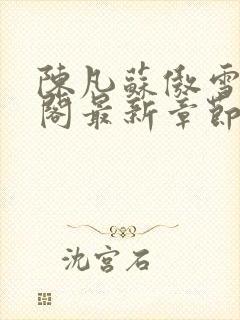 陳凡蘇傲雪
閣最新章節
沈宮石